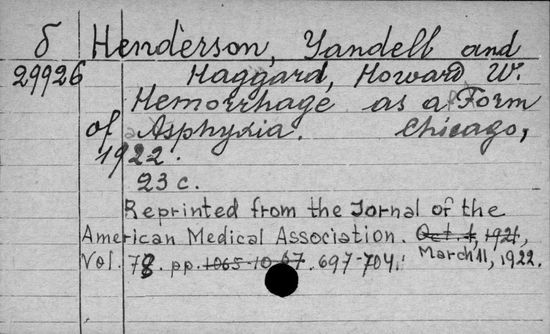 δ Henderson, Yandell and
29926 Haggard, Howard W.
Hemorrhage as a Form
of Asphyxia. Chicago,
1922.
23 c.
Reprinted from the Jornal of the
American Medical Association. Oct. 1, 1921, March 11, 1922.
Vol. 78. pp. 1065-1067. 697-704.